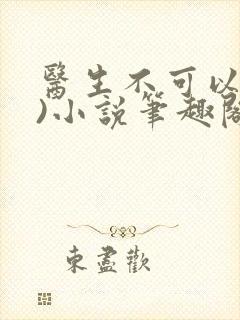 醫生不可以
)小說筆趣閣
東盡歡